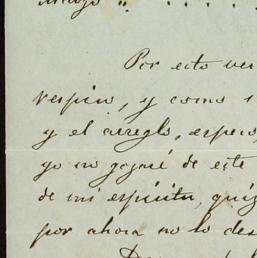 Por esto ver
y como
y el arreglo, espero
yo no gozaré de este
de mi espíritu, quiz
por ahora no lo des